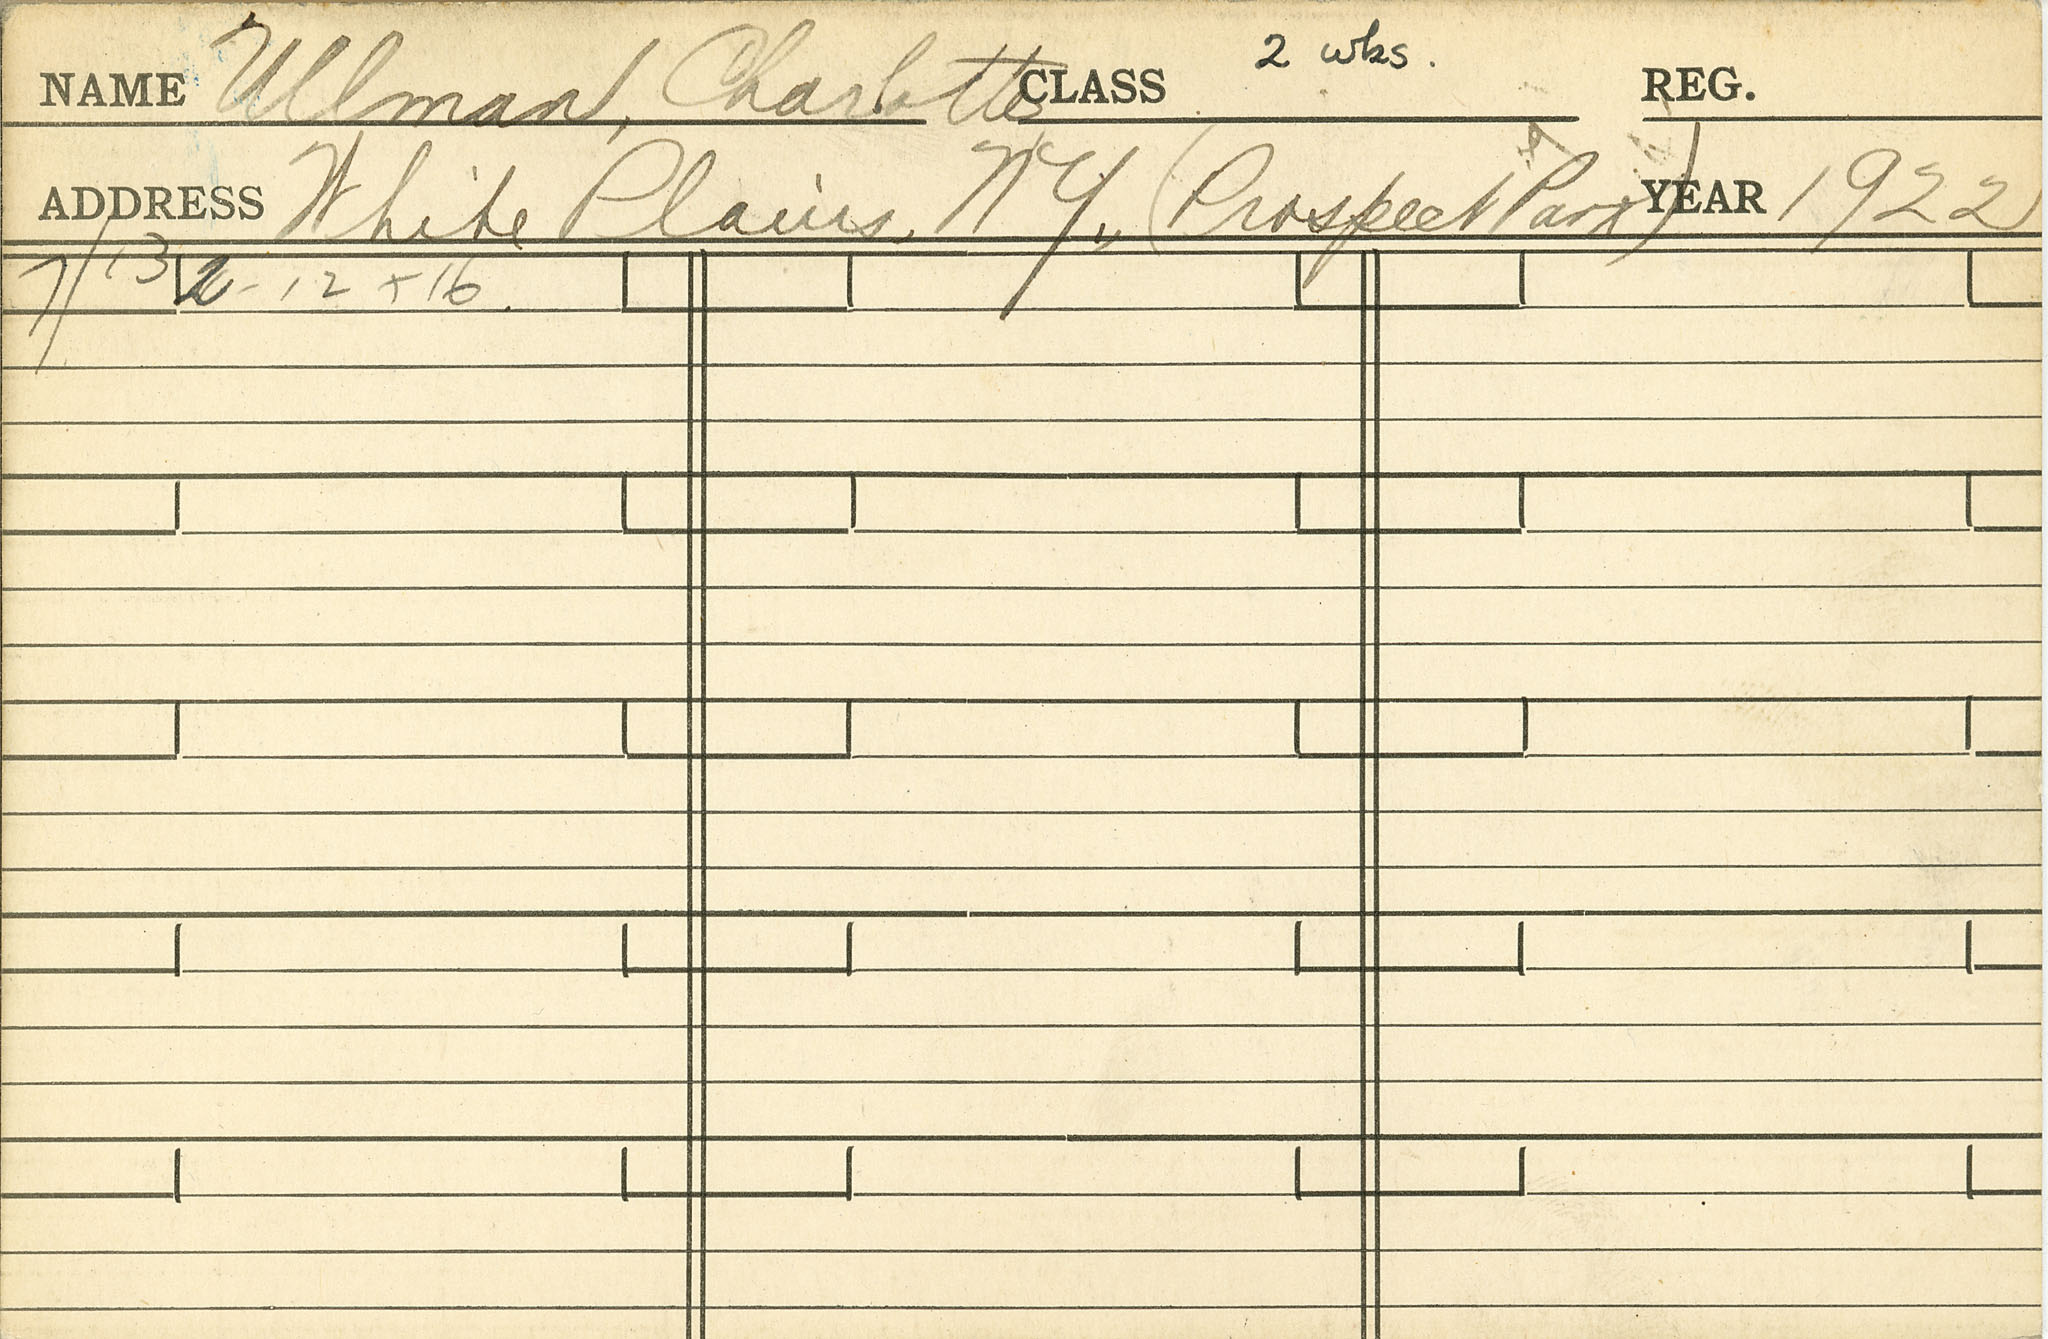 NAME Ullman, Charlotte CLASS 2 wks. REG.
ADDRESS White Plains, N.Y., (Prospect Park) YEAR 1922
7/13 2-12+16